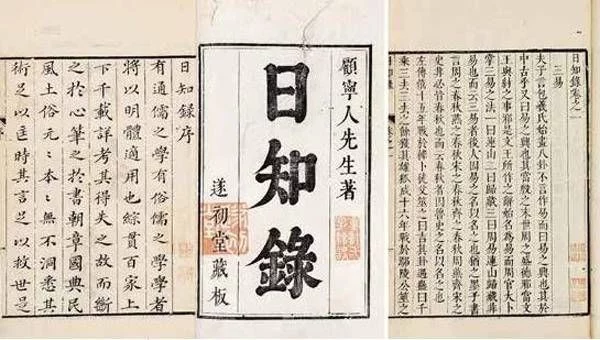 日知錄序
有通儒之學有俗儒之學學者
將以明體適用也綜貫百家上
下千載詳考其得失之故而斷
之於心筆之於書朝章國典民
風土俗元〻本〻無不洞悉其
術足以匡時其言足以救世是
顧寧人先生著
日知錄
遂初堂藏板
日知錄卷之一
三易
夫子言包羲氏始畫八卦不言作易而曰易之興也其於
中古乎又曰易之興也其當殷之末世周之盛德邪當文
王與紂之事邪是文王所作之辭始名為易而周官大卜
掌三易之法一曰連山二曰歸藏三曰周易連山歸藏非
易也而云三易者後人因易之名以名之也猶之墨子書
言周之春秋燕之春秋宋之春秋齊之春秋周燕齊宋之
史非必皆春秋也而云春秋者因魯史之名以名之也
左傳僖十五年戰於韓卜徒父筮之曰吉其卦遇蠱曰千
乘三去三去之餘獲其雄狐成十六年戰於鄢陵公筮之
日知錄